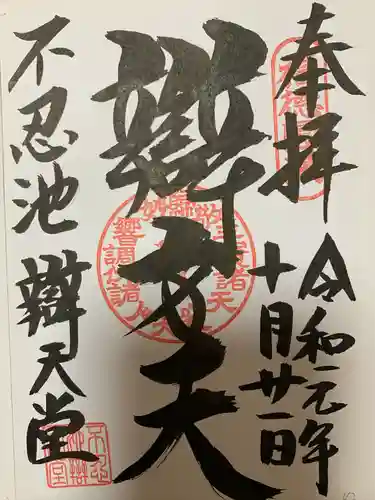 奉拝
令和元年
十月廿一日
辯才天
不忍池
辯天堂